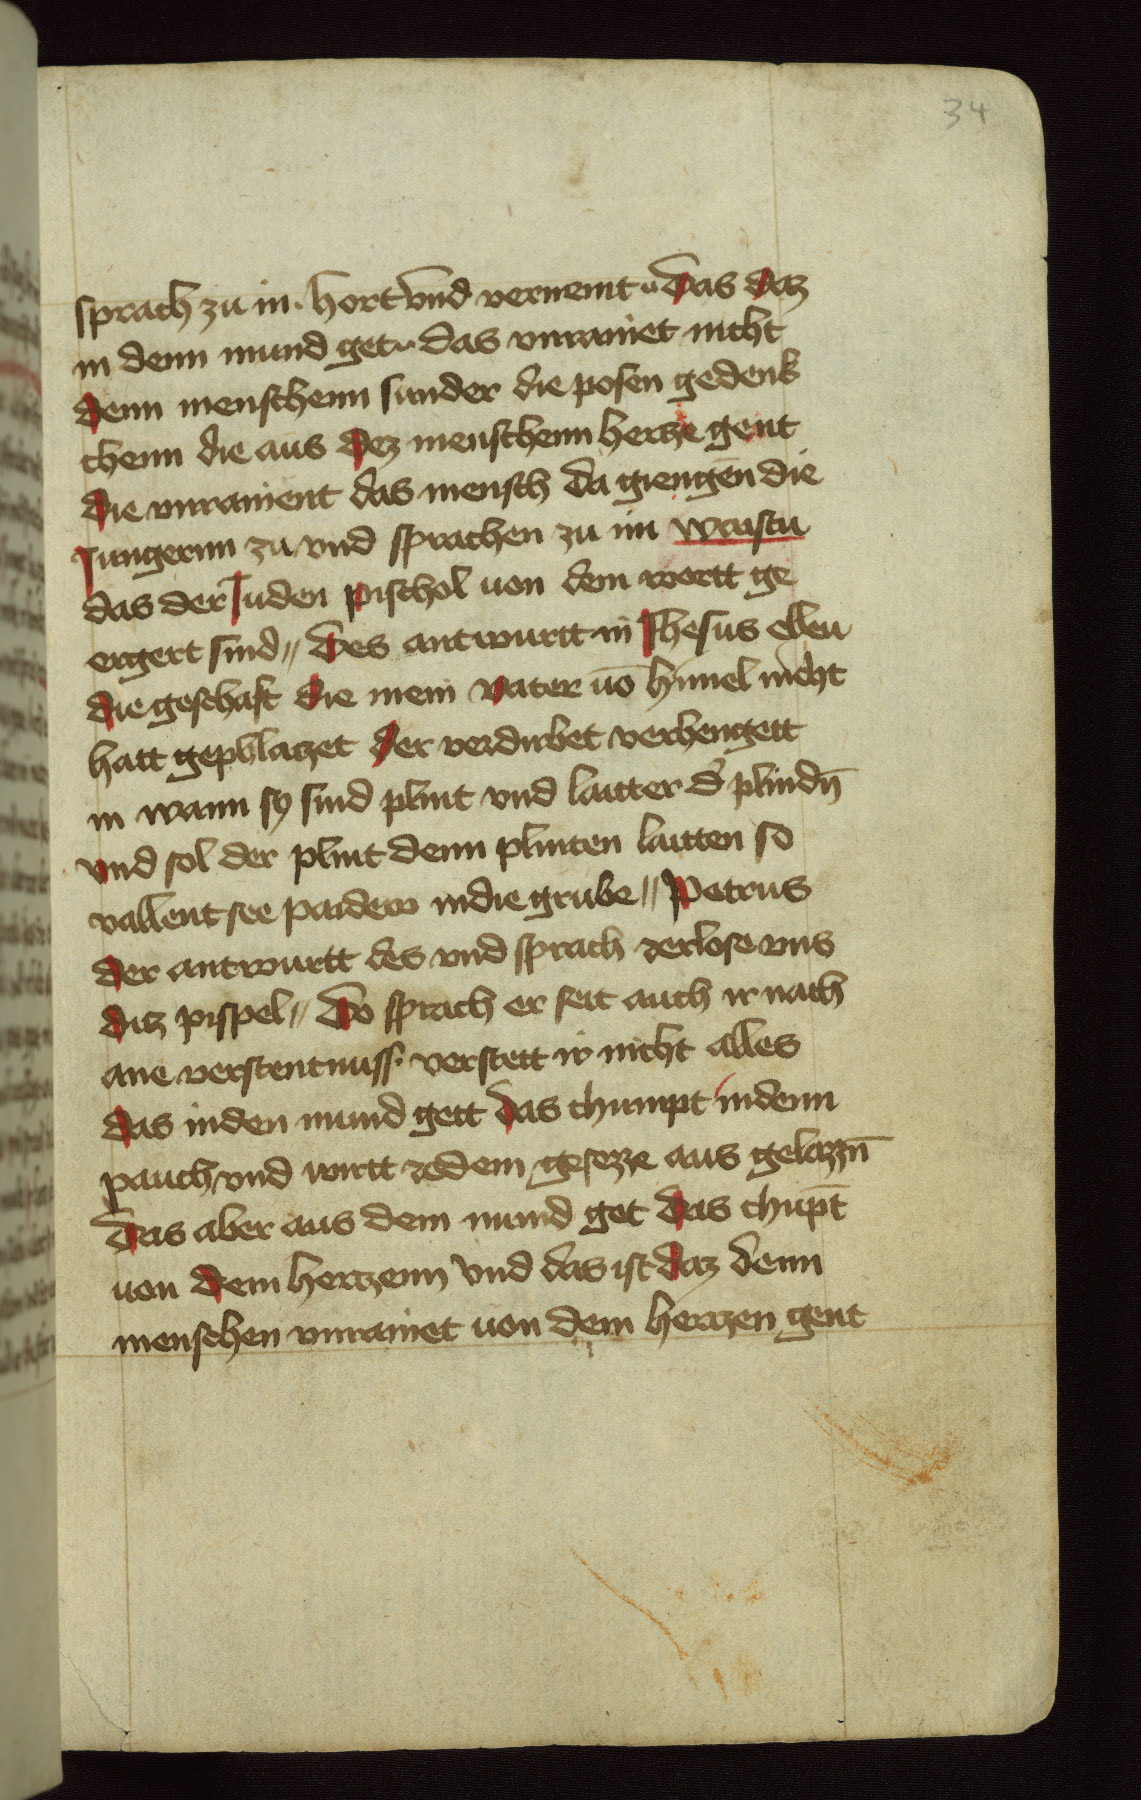 34
sprach zu in. hort vnd vernemt „ das daz
in denn mund get „ das vnrainet nicht
denn menschenn sunder die posen gedenk
chenn die aus dez menschenn hertze gent
die vnrainent das mensch da giengen die
Jungernn zu vnd sprachen zu im waistu
das der Juden pischol uon dem wortt ge
ergert sind „ des antwurtt in Jhesus ellew
die geschaft die mein vater uō himel nicht
hatt gephlatzet der verdirbet verhengett
in wann sy sind plint vnd laitter d' plindn̄
vnd sol der plint denn plinten laitten so
vallent see paidew in die grube „ Petrus
der antwurtt des vnd sprach zerlose vns
ditz pispel „ Do sprach er seit auch ir nach
ane verstentnuss. verstett ir nicht alles
das in den mund gett das chumpt in denn
pauch vnd wirtt zedem gesezze aus gelazzn̄
Das aber aus dem mund get das chūpt
uon dem hertzenn Vnd das ist daz denn
menschen vnrainet uon dem hertzen gent